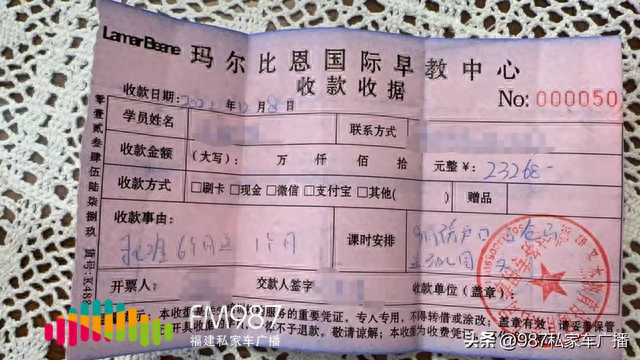 LamarBeane 玛尔比恩国际早教中心
收款收据
收款日期:2022年12月8日
No:000050
学员姓名 联系方式
收款金额 (大写): 万 仟 佰 拾 元整 ¥:23268-
收款方式 □刷卡 □现金 □微信 □支付宝 □其他( ) 赠品
收款事由: 6个月送1个月 课时安排
开票人: 交款人签字 收款单位(盖章):
零壹贰叁肆伍陆柒捌玖
货号:K48
本收据 服务的重要凭证,专人专用,不得转借或涂改,盖章有效,请妥善保管
不予退款,敬请谅解;本收据为收费凭证
FM987
福建私家车广播
头条@987私家车广播